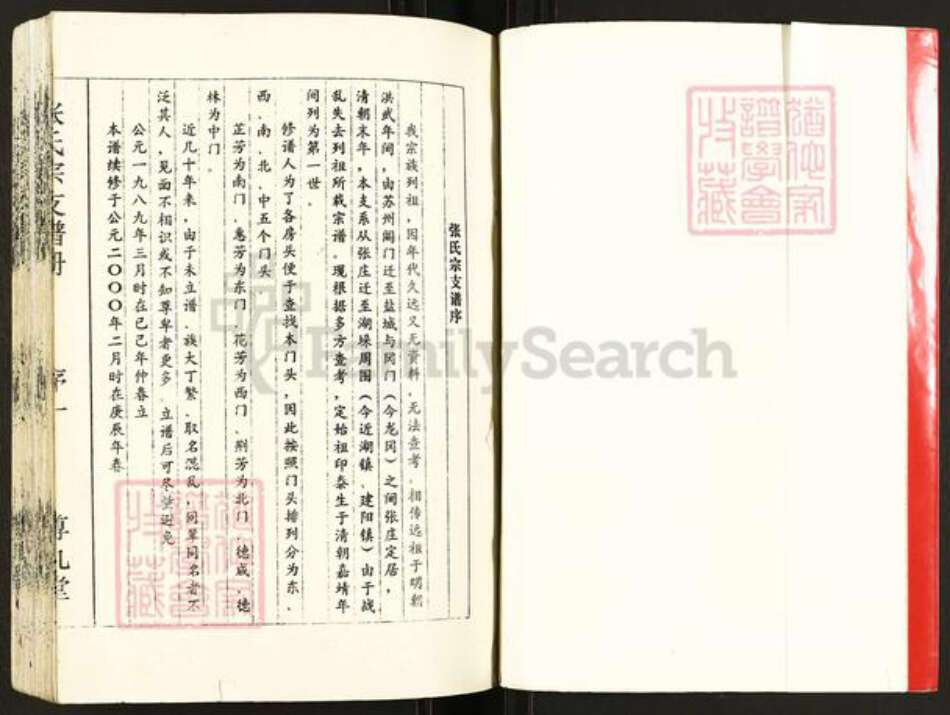 张氏宗支谱序
我宗族列祖，因年代久远又无资料，无法查考。相传远祖于明朝
洪武年间，由苏州阊门迁至盐城与冈门（今龙冈）之间张庄定居，
清朝末年，本支系从张庄迁至湖垛周围（今近湖镇、建阳镇）由于战
乱失去列祖所载宗谱。现根据多方查考，定始祖印泰生于清朝嘉靖年
间列为第一世。
修谱人为了各房头便于查找本门头，因此按照门头排列分为东、
西、南、北、中五个门头
芷芳为南门、惠芳为东门、花芳为西门、荆芳为北门、德成、德
林为中门。
近几十年来，由于未立谱、族大丁繁、取名混乱，同辈同名者不
泛其人，见面不相识或不知尊卑者更多，立谱后可尽量避免
公元一九八九年三月时在己巳年仲春立
本谱续修于公元二〇〇〇年二月时在庚辰年春
张氏宗支谱册
序一
尊礼堂
犹他家
谱学会
收藏
犹他家
谱学会
收藏
FamilySearch